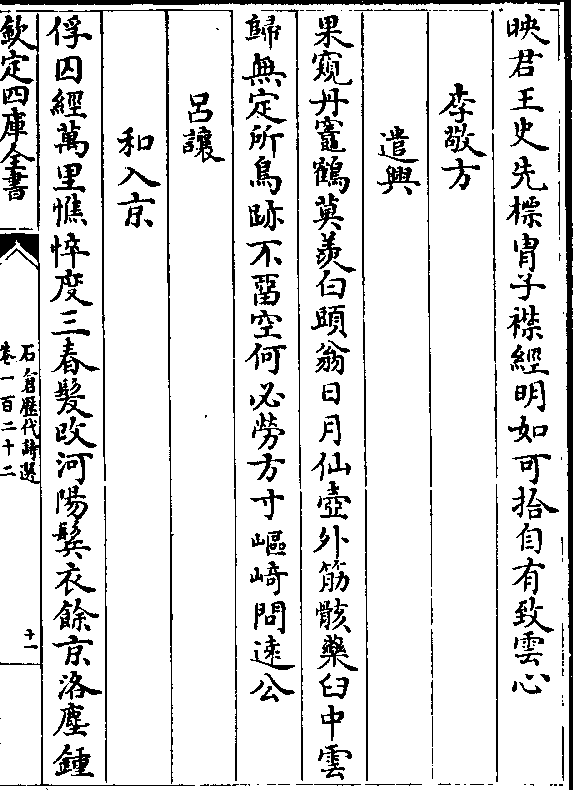 映君王史先標胄子襟經明如可拾自有致雲心
李敬方
遣興
果窺丹竈鶴莫羨白頭翁日月仙壺外筋骸藥臼中雲
歸無定所鳥跡不留空何必勞方寸嶇崎問遠公
呂讓
和入京
俘囚經萬里憔悴度三春髮改河陽鬢衣餘京洛塵鍾
欽定四庫全書
石倉歷代詩選
卷一百二十二
十一